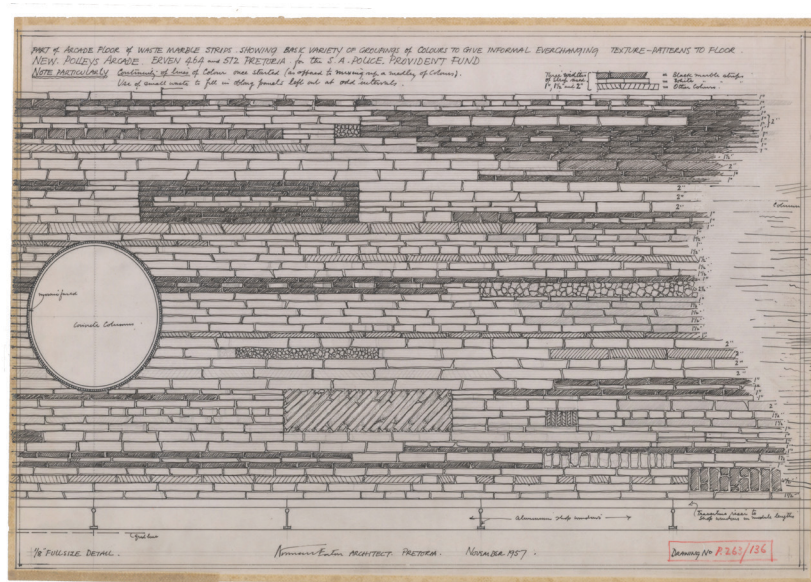 PART of ARCADE FLOOR of WASTE MARBLE STRIPS. SHOWING BASIC VARIETY of GROUPINGS of COLOURS TO GIVE INFORMAL EVERCHANGING TEXTURE-PATTERNS TO FLOOR.
NEW POLLEYS ARCADE. ERVEN 464 and 572 PRETORIA. for the S.A. POLICE. PROVIDENT FUND
NOTE PARTICULARLY Continuity of lines of Colour once started (as opposed to merely a medley of Colours).
Use of small waste to fill in oblong panels left out at odd intervals.
Three widths
of strip used
1", 1½" and 2"
= Black marble strips
= White
= Other Colours
Columns
Concrete Columns
Aluminium shop windows
Grid line
1/8" FULL SIZE DETAIL.
Norman Eaton ARCHITECT. PRETORIA. NOVEMBER 1957.
DRAWING No P.263/136